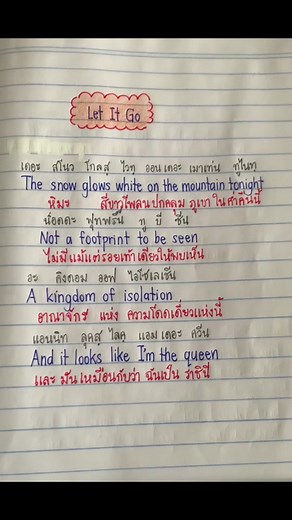 Let It Go
เดอะ สโนว โกลสฺ ไวทฺ ออน เดอะ เมาเท่น ทูไนท
The snow glows white on the mountain tonight
หิมะ สีขาวโพลนปกคลุม ภูเขาในค่ำคืนนี้
น็อดดะ ฟุทพริ้น ทู บี ซีน
Not a footprint to be seen
ไม่มีแม้แต่รอยเท้าเดียวให้พบเห็น
อะ คิงดอม ออฟ ไอโซเลชั่น
A kingdom of isolation
อาณาจักร แห่ง ความโดดเดี่ยวแห่งนี้
แอนนิท ลุคสฺ ไลคฺ แอม เดอะ ควีน
And it looks like I'm the queen
และ มันเหมือนกับว่า ฉันเป็น ราชินี